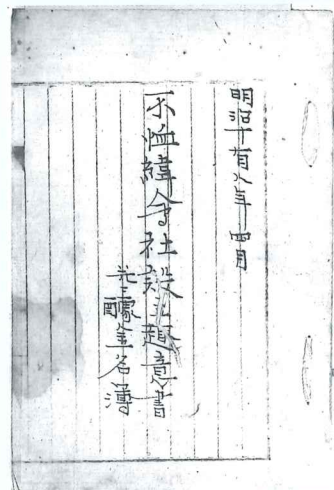 明治十有九年四月
不恤緯会社設立趣意書
並醵金名簿